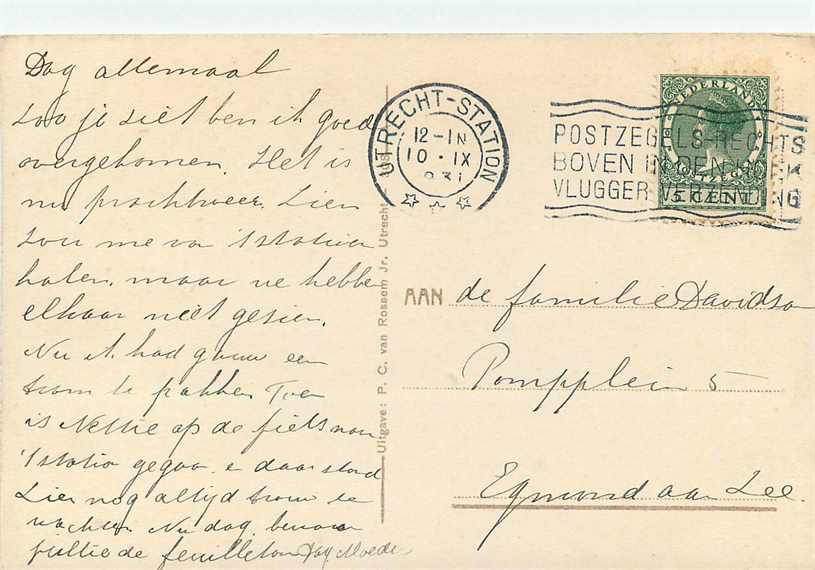 Dag allemaal
Zoo je ziet ben ik goed
overgekomen. Het is
nu prachtweer. Lien
zou me van 't station
halen, maar we hebben
elkaar niet gezien.
Nu ik had gauw een
tram te pakken Toen
is Nettie op de fiets naar
't station gegaan e daar stond
Lien nog altijd trouw te
wachten. Nu dag, bewaar
jullie de feuilleton Dag Moeder
Uitgave: P. C. van Rossem Jr. Utrecht
UTRECHT-STATION
12-1N
10·IX
931
POSTZEGELS RECHTS
BOVEN IN DEN HOEK
VLUGGER VERZENDING
NEDERLAND
5 CENT
AAN de familie Davidson
Pompplein 5
Egmond aan Zee.